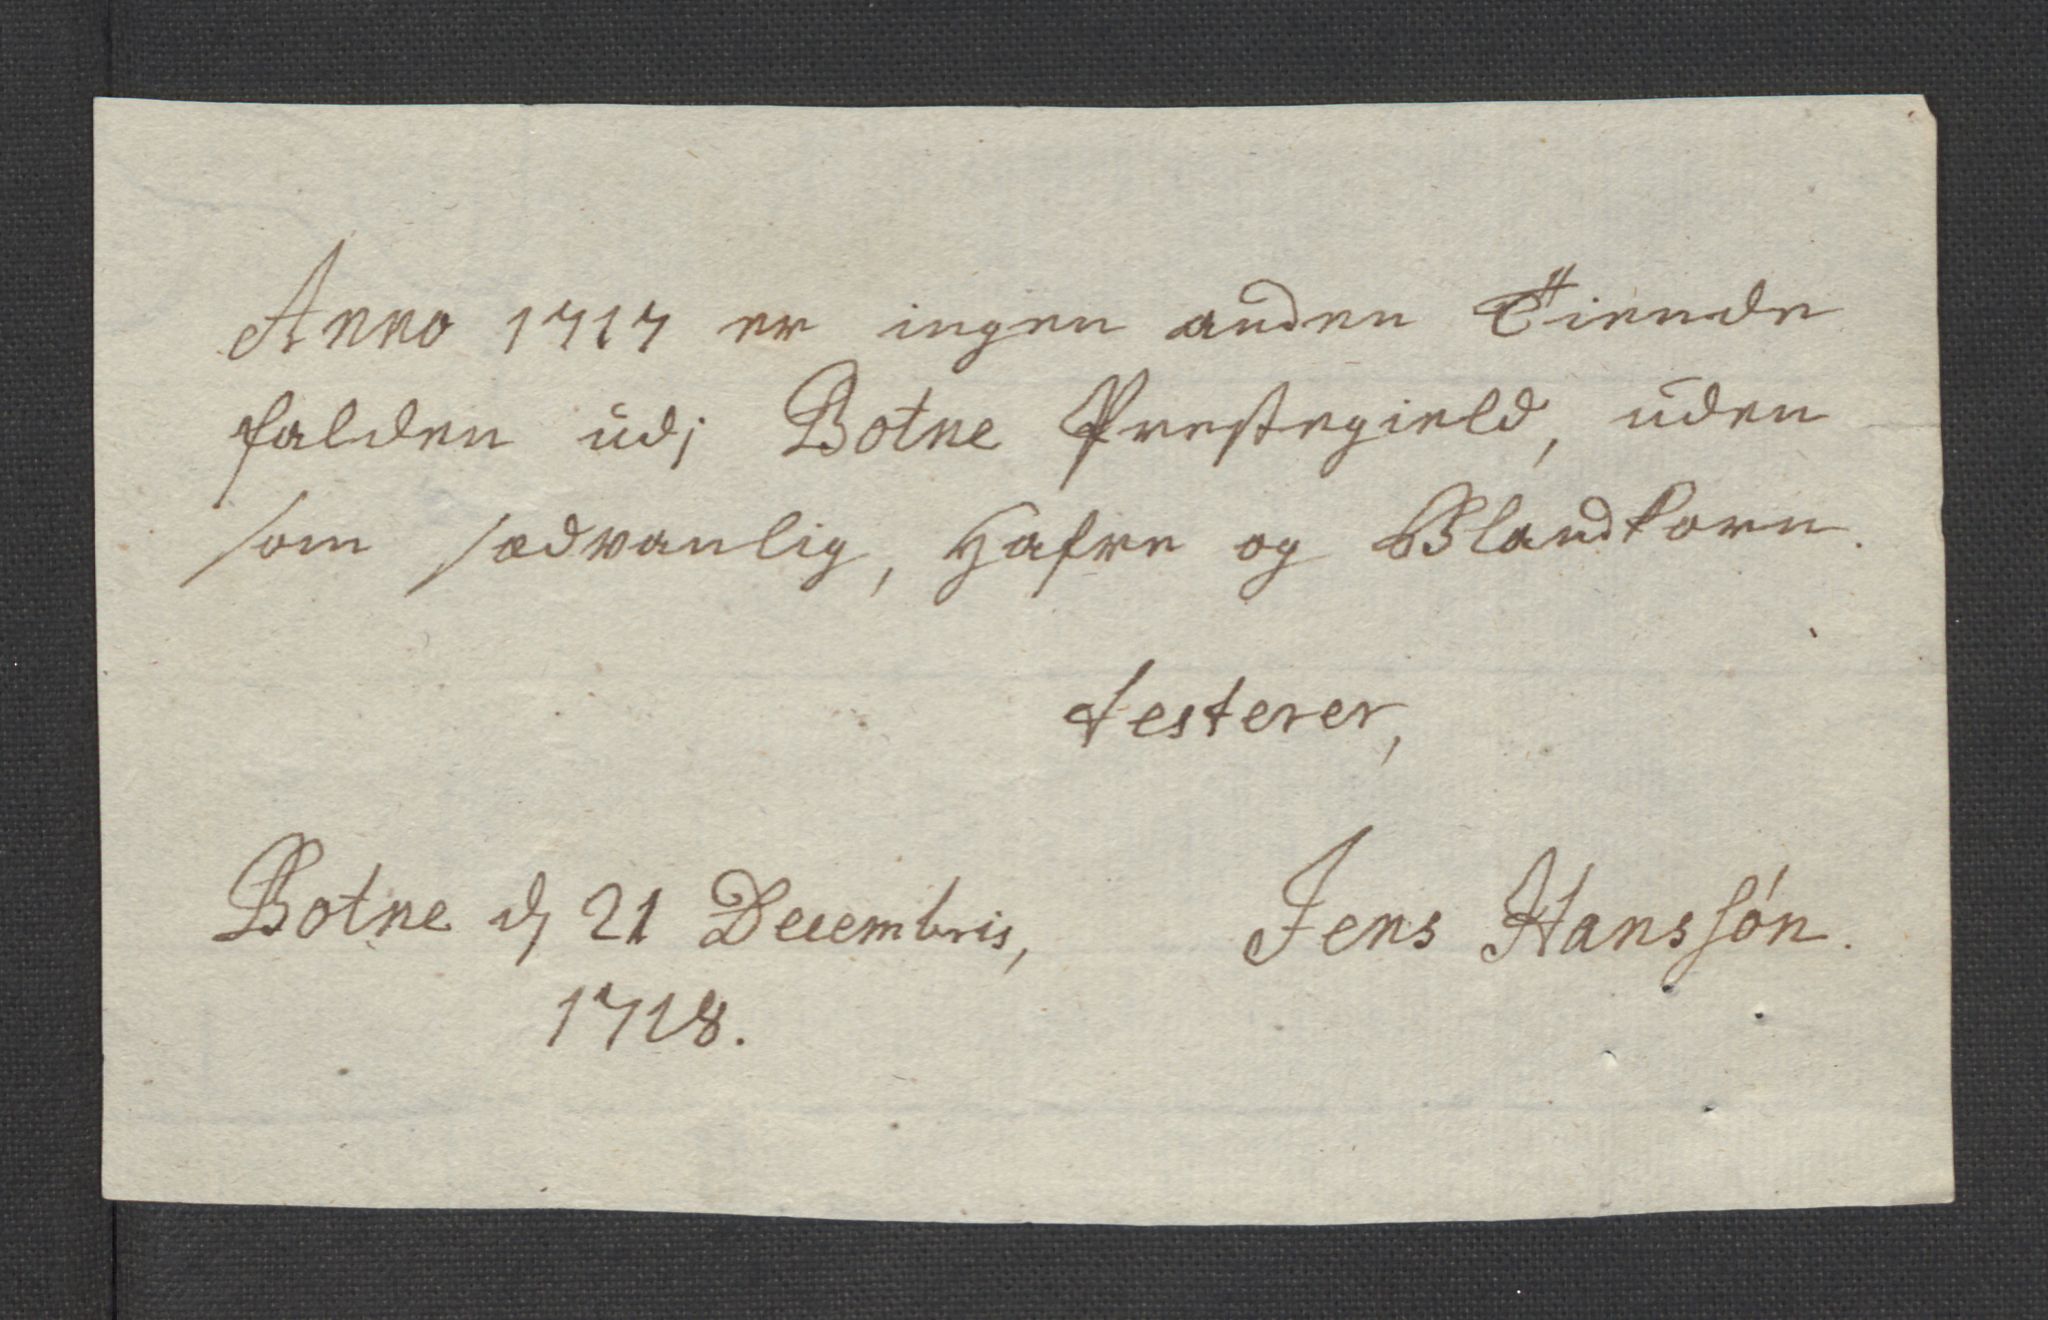 Anno 1717 er ingen anden Tiende
falden udj Botne Prestegield, uden
som sædvanlig, Hafre og Blandkorn.
testerer,
Botne d 21 Decembris,
1718.
Jens Hanssón.